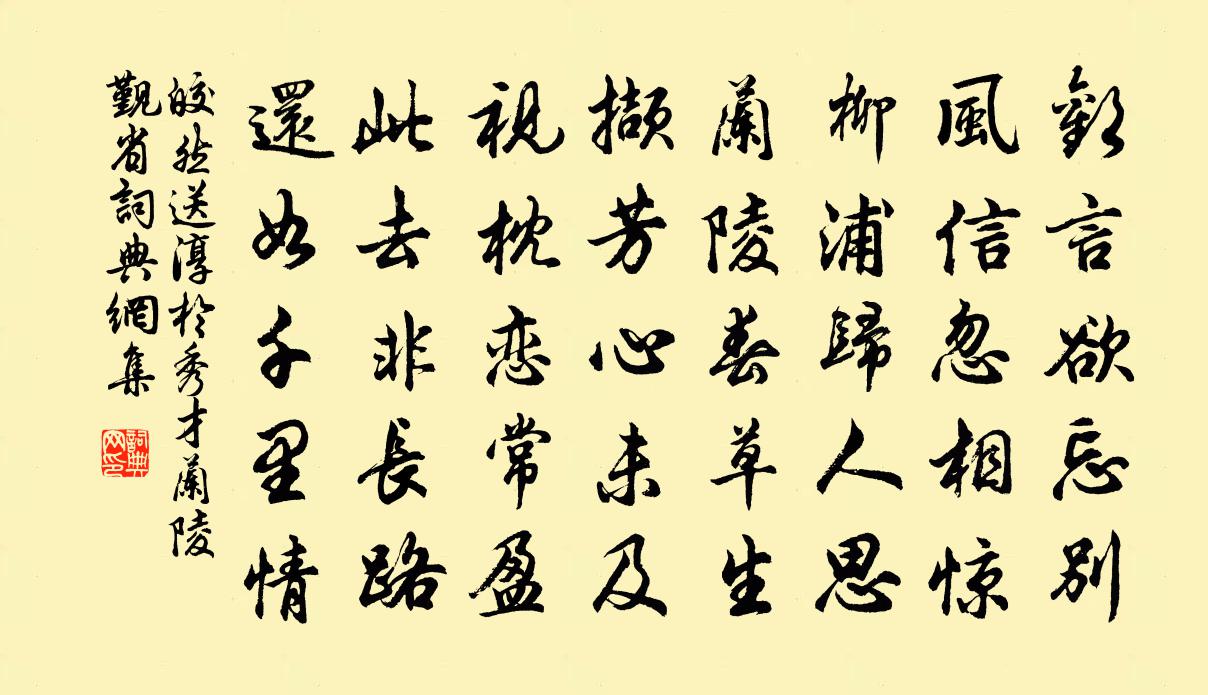 歡言欲忘別
風信忽相惊
柳浦歸人思
蘭陵春草生
擷芳心未及
視枕恋常盈
此去非長路
還如千里情
皎然送淳於秀才蘭陵
覲省詞典網集
詞典
网印